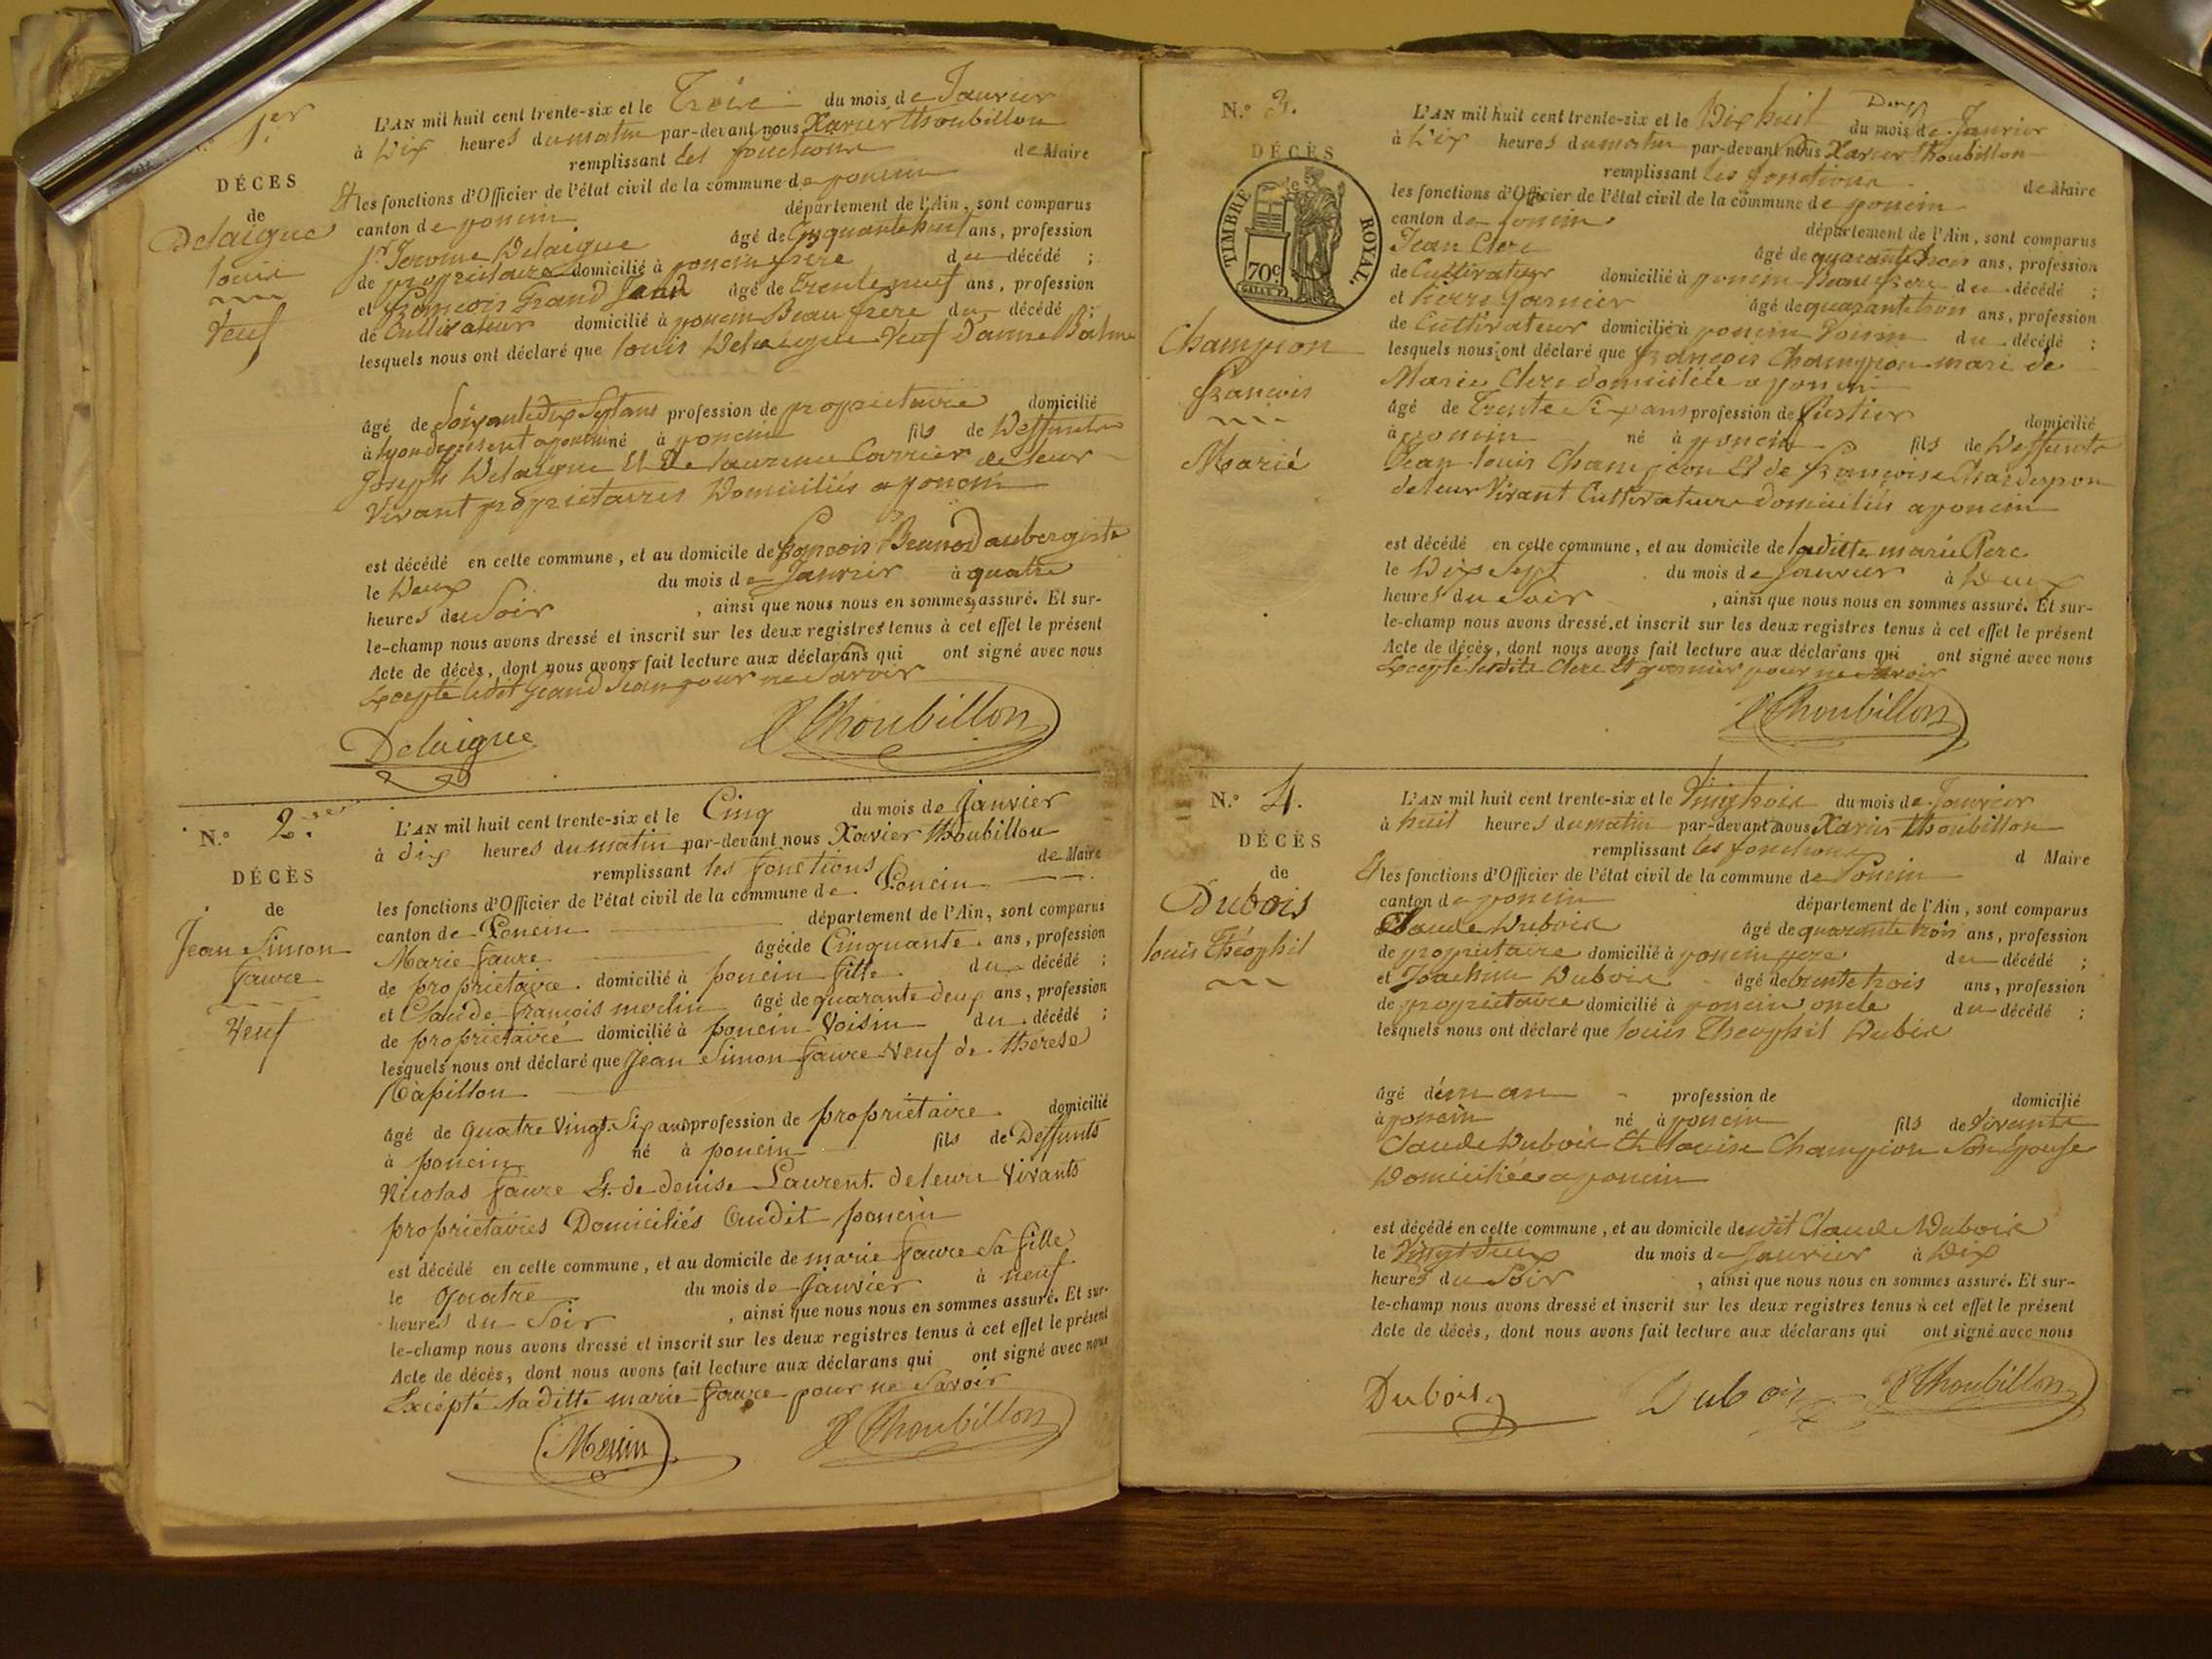 1.er
DÉCES
de
Delaigue
louis
Veuf
L'AN mil huit cent trente-six et le Trois du mois de Janvier
à Dix heures du matin par-devant nous Xavier Thoubillon
remplissant les fonctions de Maire
Et les fonctions d'Officier de l'état civil de la commune de poncin
canton de poncin département de l'Ain, sont comparus
Jerome Delaigue âgé de Cinquante huit ans, profession
de proprietaire domicilié à poncin frere du décédé ;
et francois Grand Jean âgé de Trente neuf ans, profession
de Cultivateur domicilié à poncin Beau frere du décédé ;
lesquels nous ont déclaré que louis Delaigue Veuf Danne Balme
âgé de Soixante dix Sept ans profession de proprietaire domicilié
à lyon depresent a poncin né à poncin fils de Deffunts
Joseph Delaigue Et De laurence Carrier de leur
Vivant proprietaires Domiciliés a poncin
est décédé en cette commune, et au domicile de francois Brunod aubergiste
le Deux du mois de Janvier à quatre
heures du Soir , ainsi que nous nous en sommes assuré. Et sur-
le-champ nous avons dressé et inscrit sur les deux registres tenus à cet effet le présent
Acte de décès, dont nous avons fait lecture aux déclarans qui ont signé avec nous
Excepté ledit Grand Jean pour ne Savoir
Delaigue Thoubillon
N.º 2.
DÉCÈS
de
Jean Simon
faure
Veuf
L'AN mil huit cent trente-six et le Cinq du mois de Janvier
à dix heures du matin par-devant nous Xavier Thoubillon
remplissant les fonctions de Maire
les fonctions d'Officier de l'état civil de la commune de Poncin
canton de Poncin département de l'Ain, sont comparus
Marie faure âgée de Cinquante ans, profession
de proprietaire domicilié à poncin fille du décédé ;
et Claude francois merlin âgé de quarante deux ans, profession
de proprietaire domicilié à poncin Voisin du décédé ;
lesquels nous ont déclaré que Jean Simon faure Veuf de therese
Papillon
âgé de quatre Vingt Six ans profession de proprietaire domicilié
à poncin né à poncin fils de Deffunts
Nicolas faure Et de denise Laurent de leurs Vivants
proprietaires Domiciliés audit poncin
est décédé en cette commune, et au domicile de marie faure Sa fille
le quatre du mois de Janvier à neuf
heures du Soir , ainsi que nous nous en sommes assuré. Et sur-
le-champ nous avons dressé et inscrit sur les deux registres tenus à cet effet le présent
Acte de décès, dont nous avons fait lecture aux déclarans qui ont signé avec nous
Excépté laditte marie faure pour ne Savoir
Thoubillon
N.º 3.
DÉCÈS
de
TIMBRE ROYAL.
70c
Champion
francois
Marié
L'AN mil huit cent trente-six et le Dix huit du mois de Janvier
à Dix heures du matin par-devant nous Xavier Thoubillon
remplissant les fonctions de Maire
les fonctions d'Officier de l'état civil de la commune de poncin
canton de poncin département de l'Ain, sont comparus
Jean Clerc âgé de quarante trois ans, profession
de Cultivateur domicilié à poncin Beau frere du décédé ;
et Pierre Garnier âgé de quarante trois ans, profession
de Cultivateur domicilié à poncin Voisin du décédé ;
lesquels nous ont déclaré que francois Champion mari de
Marie Clerc domiciliée a poncin
âgé de Trente Six ans profession de domicilié
à poncin né à poncin fils de Deffunts
Jean louis Champion Et de francoise Chardepon
de leur Vivant Cultivateurs domiciliés a poncin
est décédé en cette commune, et au domicile de laditte marie Clerc
le Dix Sept du mois de Janvier à Deux
heures du Soir , ainsi que nous nous en sommes assuré. Et sur-
le-champ nous avons dressé et inscrit sur les deux registres tenus à cet effet le présent
Acte de décès, dont nous avons fait lecture aux déclarans qui ont signé avec nous
Excepté Clerc Et garnier pour ne Savoir
Thoubillon
N.º 4.
DÉCÈS
de
Dubois
louis Théophil
L'AN mil huit cent trente-six et le Vingt trois du mois de Janvier
à huit heures du matin par-devant nous Xavier Thoubillon
remplissant les fonctions d Maire
Et les fonctions d'Officier de l'état civil de la commune de Poncin
canton de poncin département de l'Ain, sont comparus
Claude Dubois âgé de quarante trois ans, profession
de proprietaire domicilié à poncin pere du décédé ;
et Joachim Dubois âgé de trente trois ans, profession
de proprietaire domicilié à poncin oncle du décédé ;
lesquels nous ont déclaré que louis Theophil Dubois
âgé d'un an profession de domicilié
à poncin né à poncin fils de Vivants
Claude Dubois Et louise Champion Son Epouse
Domiciliés a poncin
est décédé en cette commune, et au domicile dudit Claude Dubois
le Vingt deux du mois de Janvier à Dix
heures du Soir , ainsi que nous nous en sommes assuré. Et sur-
le-champ nous avons dressé et inscrit sur les deux registres tenus à cet effet le présent
Acte de décès, dont nous avons fait lecture aux déclarans qui ont signé avec nous
Dubois Dubois Thoubillon